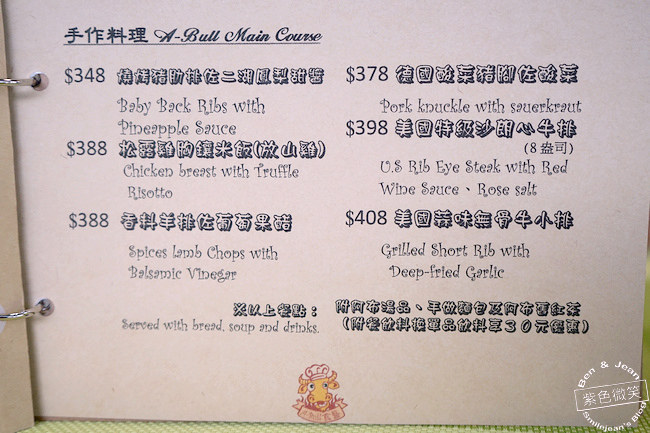 手作料理 A-Bull Main Course
$348 燒烤豬肋排佐二湖鳳梨甜醬
Baby Back Ribs with
Pineapple Sauce
$388 松露雞胸鑲米飯(放山雞)
Chicken breast with Truffle
Risotto
$388 香料羊排佐葡萄果醋
Spices lamb Chops with
Balsamic Vinegar
$378 德國酸菜豬腳佐酸菜
Pork knuckle with sauerkraut
$398 美國特級沙朗心牛排
(8盎司)
U.S Rib Eye Steak with Red
Wine Sauce、Rose salt
$408 美國蒜味無骨牛小排
Grilled Short Rib with
Deep-fried Garlic
※以上餐點： 附阿布湯品、手做麵包及阿布舊紅茶
Served with bread, soup and drinks. (附餐飲料換單品飲料享30元優惠)
Ben & Jean
紫色微笑
Smilejean's Blog